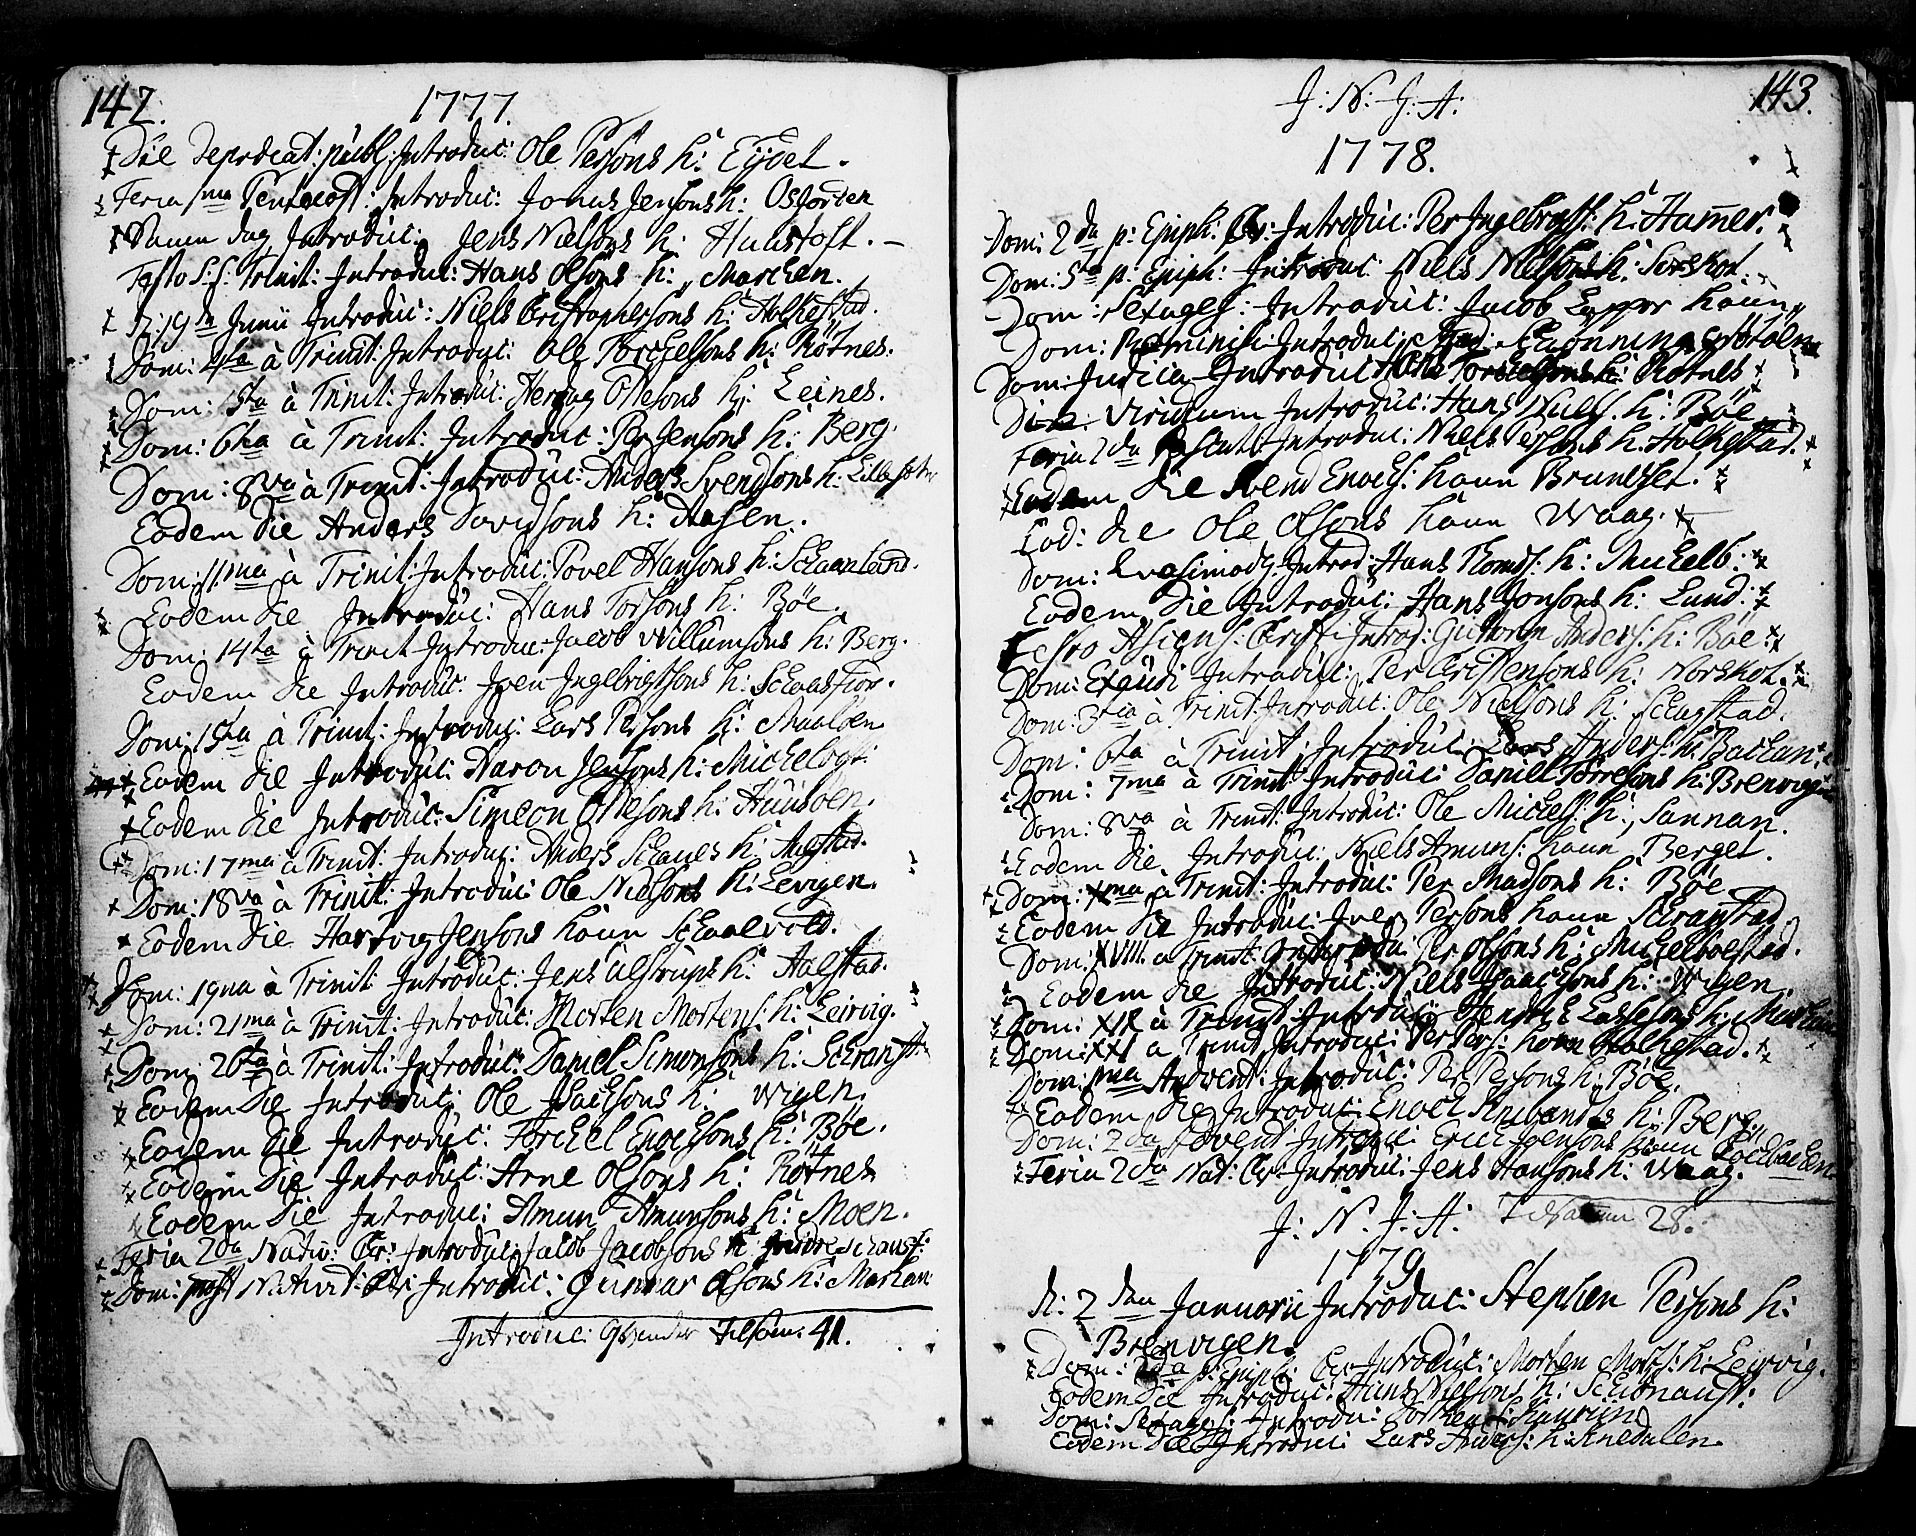 142.
1777.
Die deprecat: publ: Introduc: Ole Persöns h: Eijdet.
Feria 1ma Pentecost: Introduc: Jonas Jensöns h:
Samme dag Introduc: Jens Nielsöns h: Hunstoft.
Festo S.S. Trinit: Introduc: Hans Olsöns h: Marchen.
D: 19de Junii Introduc: Niels Christophersöns h: Holkestad.
Dom: 4ta à Trinit: Introduc: Ole Torchelsöns h: Rötnes.
Dom: 5ta à Trinit: Introduc: Hertug Ollesöns h: Leines.
Dom: 6ta à Trinit: Introduc: Per Jensöns h: Berg.
Dom: 8va à Trinit: Introduc: Anders Svendsöns h:
Eodem die Anders Davidsöns h: Aasen.
Dom: 11ma à Trinit: Introduc: Povel Hansöns h: Schaanland.
Eodem die Introduc: Hans Torsöns h: Böe.
Dom: 14ta à Trinit Introduc: Jacob Willumsöns h: Berg.
Eodem die Introduc: Iven Ingebrigtsöns h: Schaasfior.
Dom: 15ta à Trinit: Introduc: Lars Persöns h: Maalöen
Eodem die Introduc: Haron Jensöns h: Michelbogt.
Eodem die Introduc: Simeon Ollesöns h: Huusöen.
Dom: 17ma à Trinit: Introduc: Anders Schaues h: Aagstad.
Dom: 18va à Trinit: Introduc: Ole Nielsöns h: Levigen.
Eodem die Hartvig Jensöns konn Schaalvold.
Dom: 19na à Trinit: Introduc: Jens Ulstrups h: Aalstad.
Dom: 21ma à Trinit: Introduc: Morten Mortens: h: Leirvig.
Dom: 26ta à Trinit: Introduc: Daniel Simonsöns h: Schranst:
Eodem die Introduc: Ole Isachsöns h: Wigen.
Eodem die Introduc: Torchel Enochsöns h: Böe.
Eodem die Introduc: Arne Olsöns h: Rötnes
Eodem die Introduc: Amun Amunsöns h: Moen.
Feria 2da Nativ: Chr: Introduc: Jacob Jacobsöns h:
Dom: post Nativit: Chr: Introduc: Gunnar Olsöns h: Markan
Introduc: Qvinder tilsam: 41.
143.
J: N: J: A:
1778.
Dom: 2da p: Epiph: Chr: Introduc: Per Ingebrigts: h: Hamer.
Dom: 5ta p: Epiph: Introduc Niels Nielsöns h:
Dom: Sexages: Introduc: Jacob konn
Dom: Reminisc: Introduc:
Dom: Judica Introduc: Torchelsöns h: Rötnes
Die viridium Introduc: Hans Niels. h: Böe
Feria 2da Pascat: Introduc: Niels Persöns h: Holkestad.
Eodem die Svend Enochs: konn Bruneset.
Eod: die Ole Olsöns konn Waag.
Dom: Qvasimodg: Introd: Hans Thomæs: h: Michelb:
Eodem die Introduc: Hans Jonsöns h: Lund:
Festo Ascens: Christi Introd: Guttorm Anders: h: Böe:
Dom: Exaudi Introduc: Per Christensöns h: Norskot.
Dom: 3tia à Trinit: Introduc: Ole Nielsöns h: Schagstad.
Dom: 6ta à Trinit: Introduc: Lars Anders: h: Bachan:
Dom: 7ma à Trinit: Introduc: Daniel Torresöns h: Brenvigen
Dom: 8va à Trinit: Introduc: Ole Michels: h: Sannan.
Eodem die Introduc: Niels Amuns: konn Berget.
Dom: Xma à Trinit: Introduc: Per Madsöns h: Böe
Eodem die Introduc: Iver Persöns konn Schranstad
Dom: XVIII à Trinit: Introdu: Per Olsöns h: Michelboestad.
Eodem die Introduc: Niels Isaachsöns h: Wigen.
Dom: XIX à Trinit: Introduc: Hendrich Lassesöns h:
Dom: XXI à Trinit Introduc: Per Pers: konn Holkestad.
Dom: 1ma Andvent: Introduc: Per Persöns h: Böe.
Eodem die Introduc: Enoch h: Berg.
Dom: 2da Advent: Introduc: Erich Ivensöns konn
Feria 2da Nat: Chr: Introduc: Jens Hansöns h: Waag.
J: N: J: A: Tilsamm 28.
1779
d: 2den Januarii Introduc: Stephen Persöns h:
Brenvigen.
Dom: 2da p: Epiph: Chr Introduc: Morten Morts: h: Leyrvig.
Eodem die Introduc: Hans Nielsöns h:
Dom: Sexages: Introdu:
Eodem Die Introduc: Lars Anders: h: Knedalen.